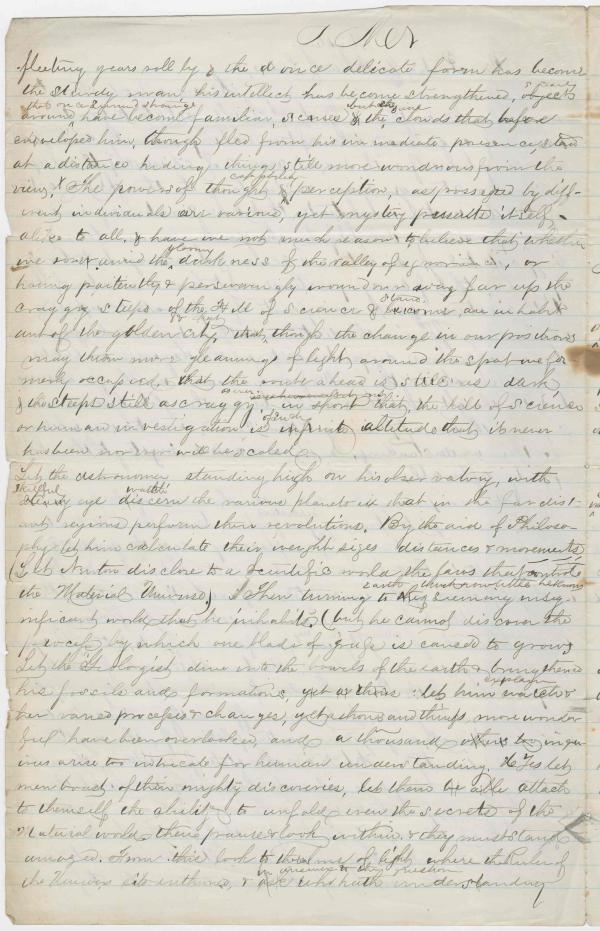 fleeting years roll by & the once delicate form has become
the sturdy man, his intellect has become strengthened, objects
that once seemed strange
around have become familiar, science & the clouds that before
enveloped him, though fled from his immediate presence, stand
at a distance hiding things still more wondrous from the
view, The powers of thought & perception, as possessed by diff-
erent individuals are various, yet mystery presents itself
alike to all. & have we not much reason to believe that, whether
gloomy
we rove amid the darkness of the valley of ignorance, or
having patiently & perseveringly wound our way far up the
stand
craggy steeps of the Hill of Science & become an inhabit
ant of the golden city, that, though the change in our positions
may throw more gleamings of light around the spot we for
merly occupied, that the route ahead is still as dark,
& the steeps still as craggy, in short that, the hill of Science
of such
or human investigation is infinite altitude that it never
has been nor ever will be scaled
Let the astronomer standing high on his observatory, with
skilful
eye discern the various planets that in the far dist-
ant regions perform their revolutions. By the aid of Philoso-
phy let him calculate their weight sizes distances & movements
(Let Newton disclose to a Scientific world the laws that control
the Material Universe.) Then turning to this seeming insig-
nificant world that he inhabits. (but he cannot discover the
process by which one blade of grass is caused to grow)
Let the Geologist dive into the bowels of the earth & bring thence
explain
his fossils and formations, let him watch &
her varied processes & changes, yet a thousand things more wonder
ful have been overlooked, and a thousand inqui
ries arise too intricate for human understanding. Yes let
men boast of their mighty discoveries, let them attach
to themself the ability to unfold even the secrets of the
Material world, there pause & look within & they must stand
amazed. From this look to the realms of light where the Ruler of
in answer to the question
the Universe sits enthroned, & who hath understanding